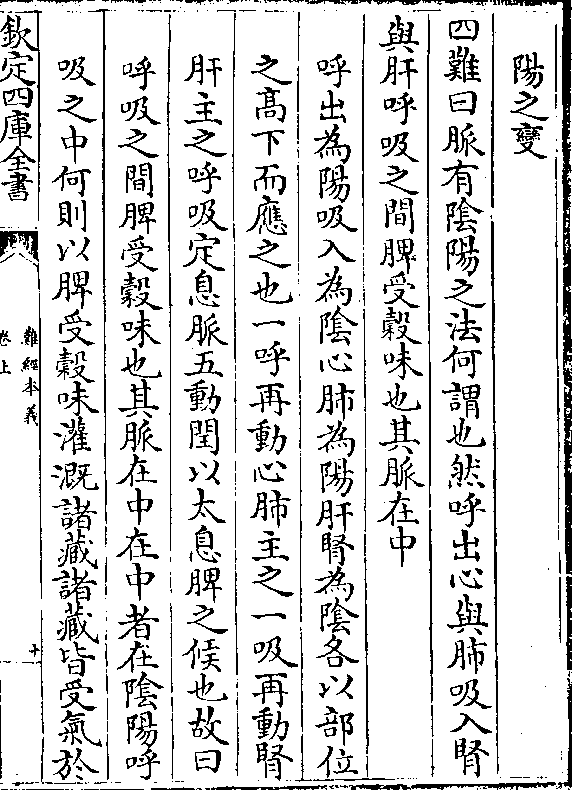 陽之變
四難曰脈有陰陽之法何謂也然呼出心與肺吸入腎
與肝呼吸之間脾受穀味也其脈在中
呼出為陽吸入為陰心肺為陽肝腎為陰各以部位
之高下而應之也一呼再動心肺主之一吸再動腎
肝主之呼吸定息脈五動閏以太息脾之候也故曰
呼吸之間脾受穀味也其脈在中在中者在陰陽呼
吸之中何則以脾受穀味灌溉諸藏諸藏皆受氣於
欽定四庫全書
難經本義
卷上
十